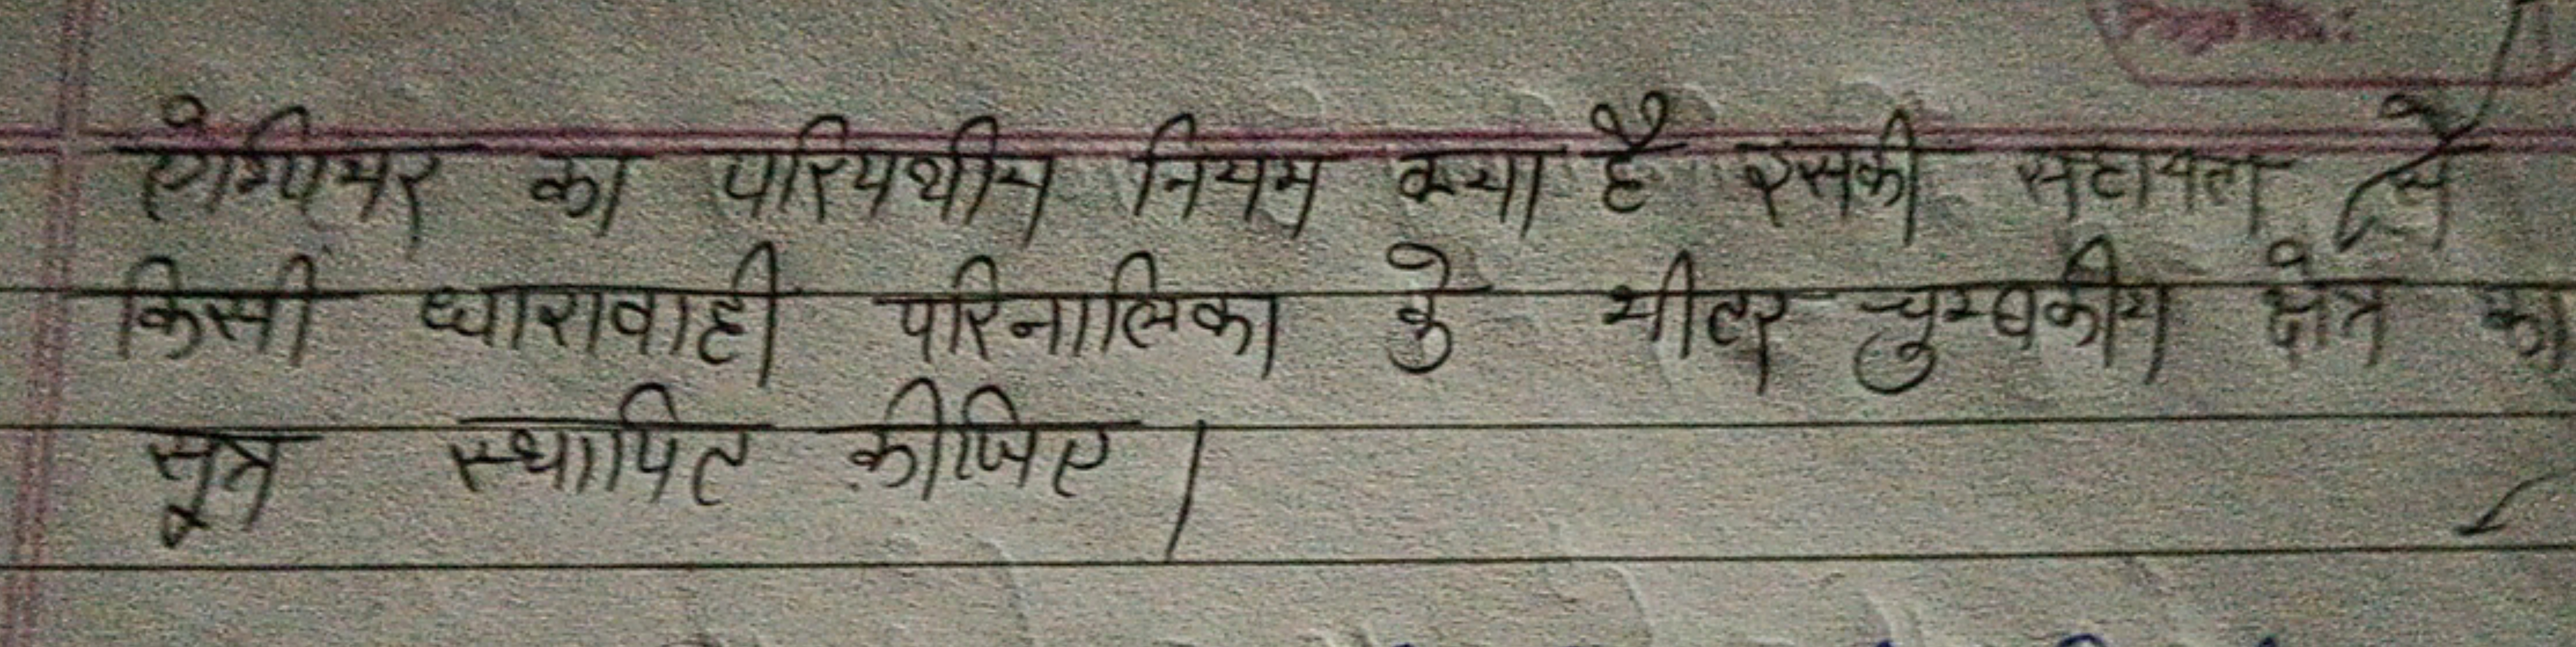 ऐम्पियर का परिपथीय नियम क्या है इसकी सहायता से
किसी धारावाही परिनालिका के भीतर चुम्बकीय क्षेत्र का
सूत्र स्थापित कीजिए।